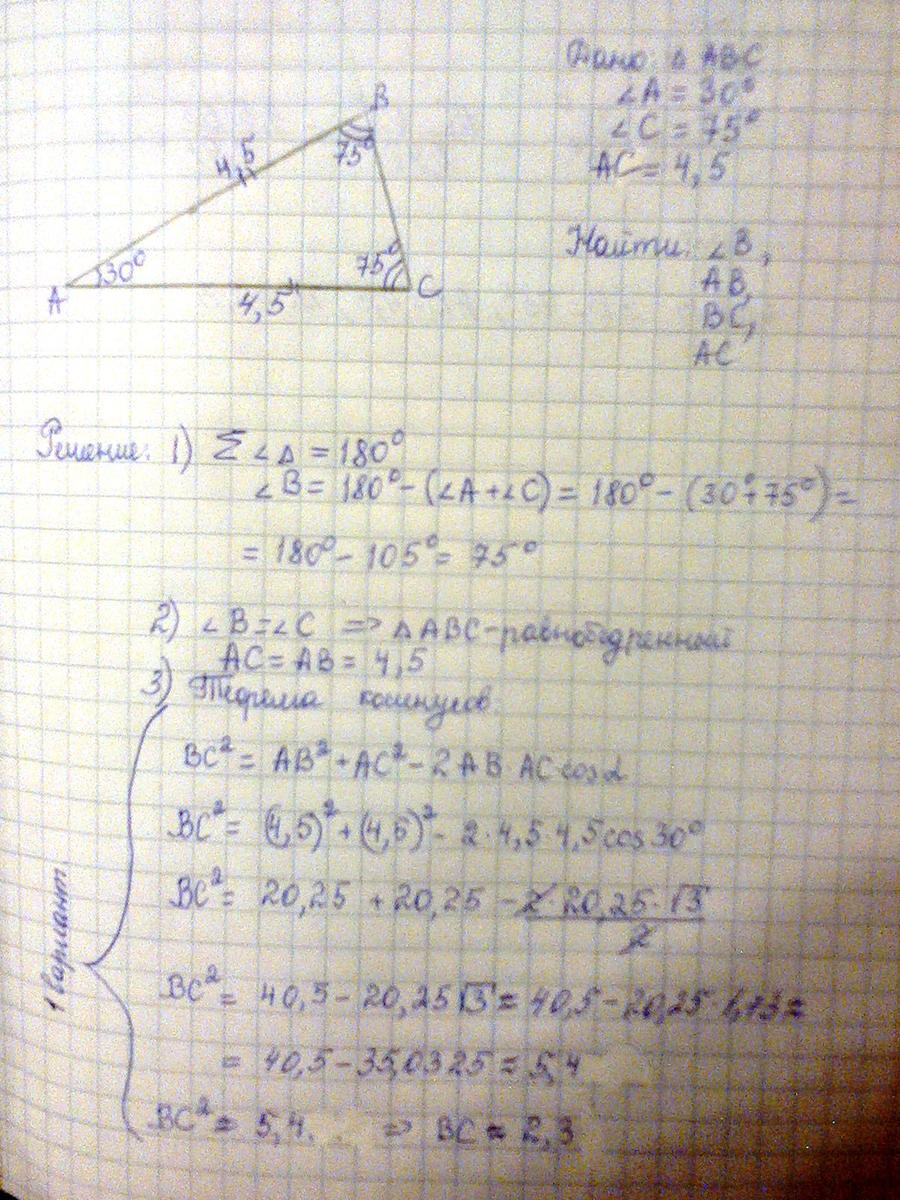 Дано: △ ABC
∠A = 30°
∠C = 75°
AC = 4,5
Найти: ∠B,
AB,
BC,
AC
B
75°
4,5
30°
A
75°
C
4,5
Решение: 1) Σ ∠△ = 180°
∠B = 180° - (∠A + ∠C) = 180° - (30° + 75°) =
= 180° - 105° = 75°
2) ∠B = ∠C => △ABC - равнобедренный
AC = AB = 4,5
3) Теорема косинусов.
BC² = AB² + AC² - 2AB · AC cos α
BC² = (4,5)² + (4,5)² - 2 · 4,5 · 4,5 cos 30°
BC² = 20,25 + 20,25 - 2 · 20,25 · √3
2
BC² = 40,5 - 20,25√3 = 40,5 - 20,25 · 1,73 =
= 40,5 - 35,0325 ≈ 5,4
BC² ≈ 5,4. => BC ≈ 2,3
1 вариант.